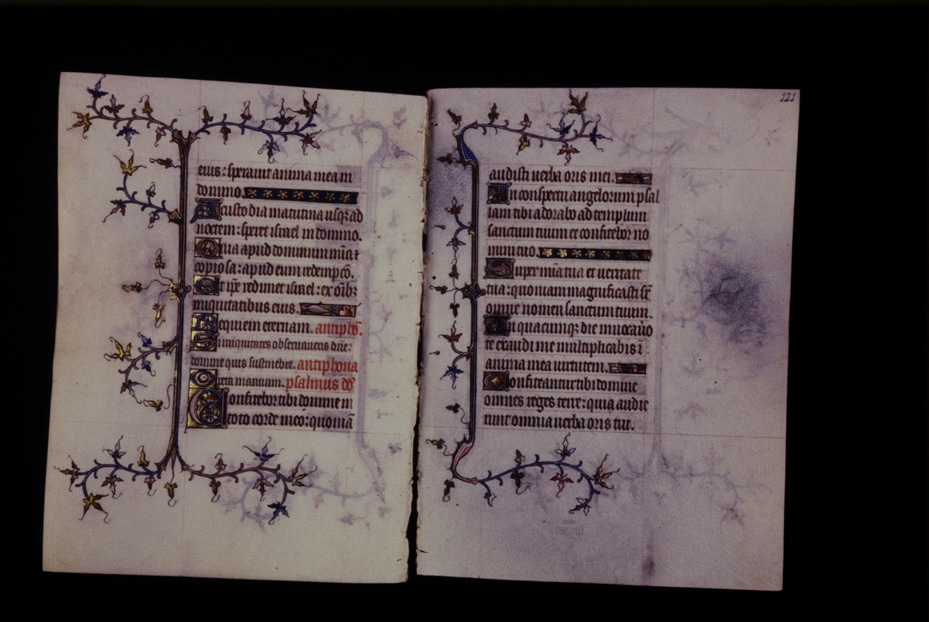 eius: speravit anima mea in
domino.
A custodia matutina usq; ad
noctem: speret israel in domino.
Quia apud dominum mīa: ⁊
copiosa: apud eum redempcō.
Et ip̄e redimet israel: ex oīb;
iniquitatibus eius.
Requiem eternam. antiph̄.
Si iniquitates observaveris dn̄e:
domine quis sustinebit. antiphona
Opera manuum. psalmus dd̄
Confitebor tibi domine in
toto corde meo: quoniam
121
audisti verba oris mei.
In conspectu angelorum psal
lam tibi adorabo ad templum
sanctum tuum et confitebor no
mini tuo.
Super mīa tua et veritate
tua: quoniam magnificasti sr̄
omne nomen sanctum tuum.
In quacumq; die invocavo
te exaudi me multiplicabis ī
anima mea virtutem.
Confiteantur tibi domine
omnes reges terre: quia audie
runt omnia verba oris tui.